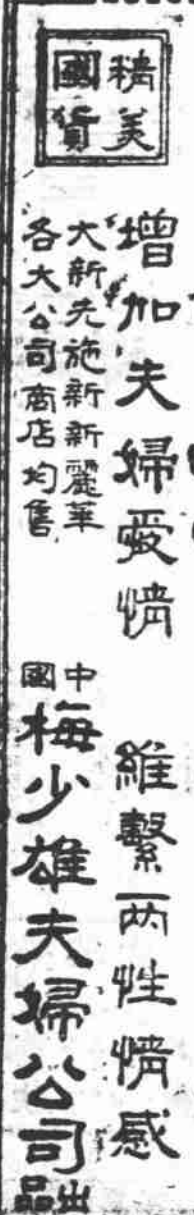 精美
國貨
增加夫婦愛情
維繫兩性情感
大新先施新新麗華
各大公司商店均售
中國
梅少雄夫婦公司
出品